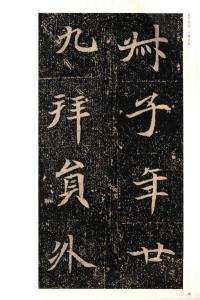 州子年廿
九拜員外